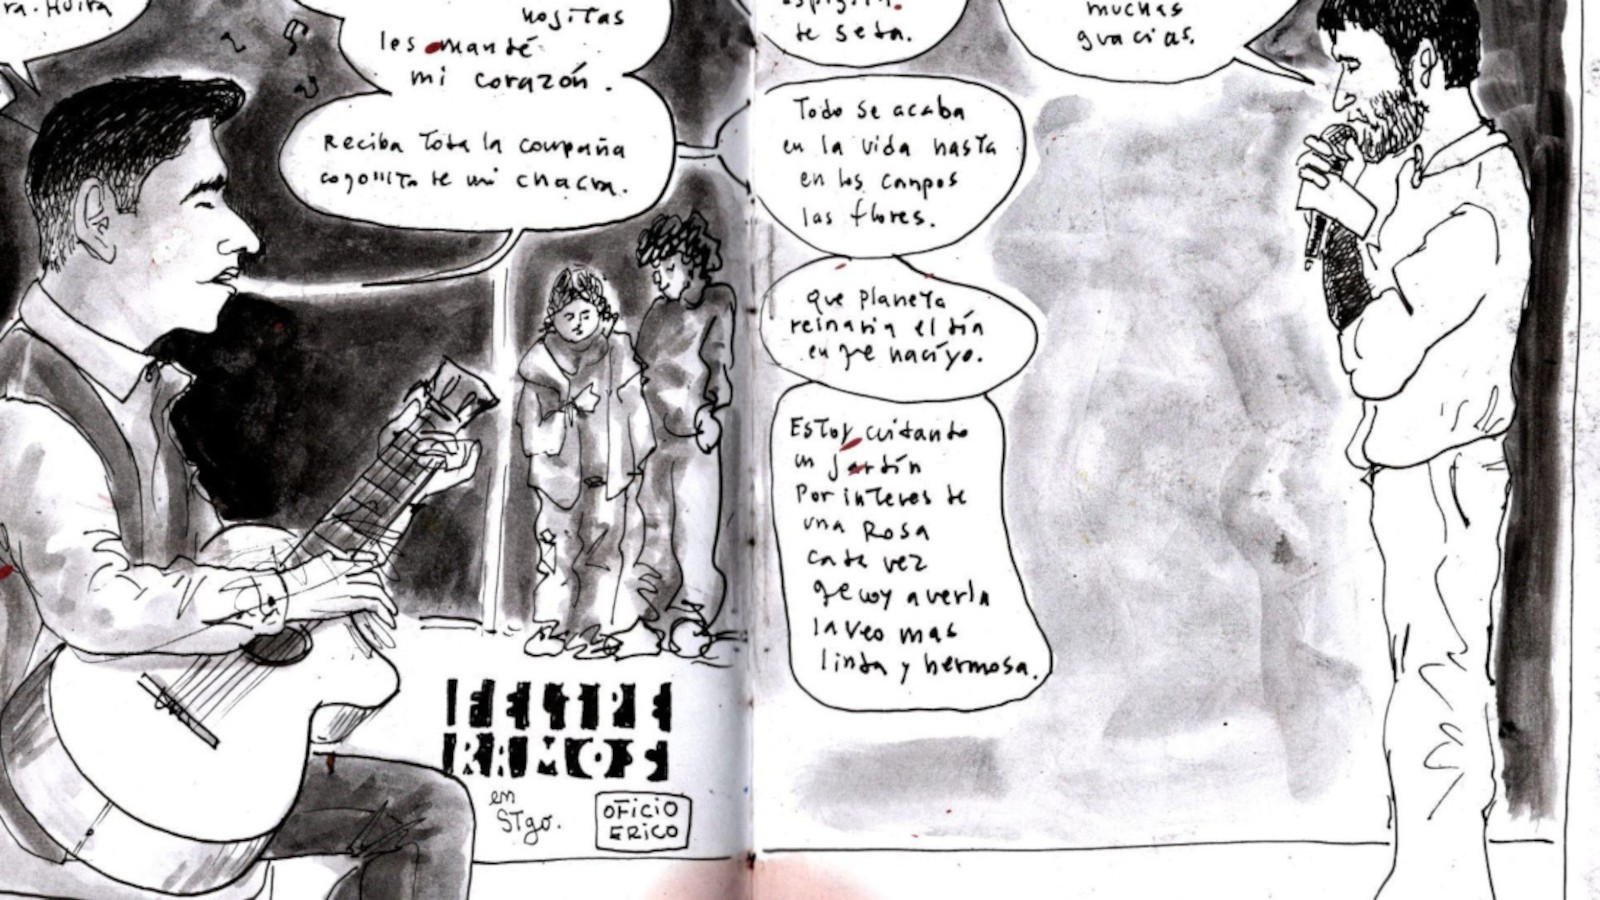 hojitas
les mandé
mi corazón.
Reciba toda la compaña
cogollito de mi chacra.
FELIPE
RAMOS
en
STgo.
OFICIO
ERICO
de seda.
muchas
gracias.
Todo se acaba
en la vida hasta
en los campos
las flores.
que planeta
reinaria el día
en qe nací yo.
Estoy cuidando
un jardín
Por interes de
una Rosa
cada vez
qe voy a verla
la veo mas
linda y hermosa.